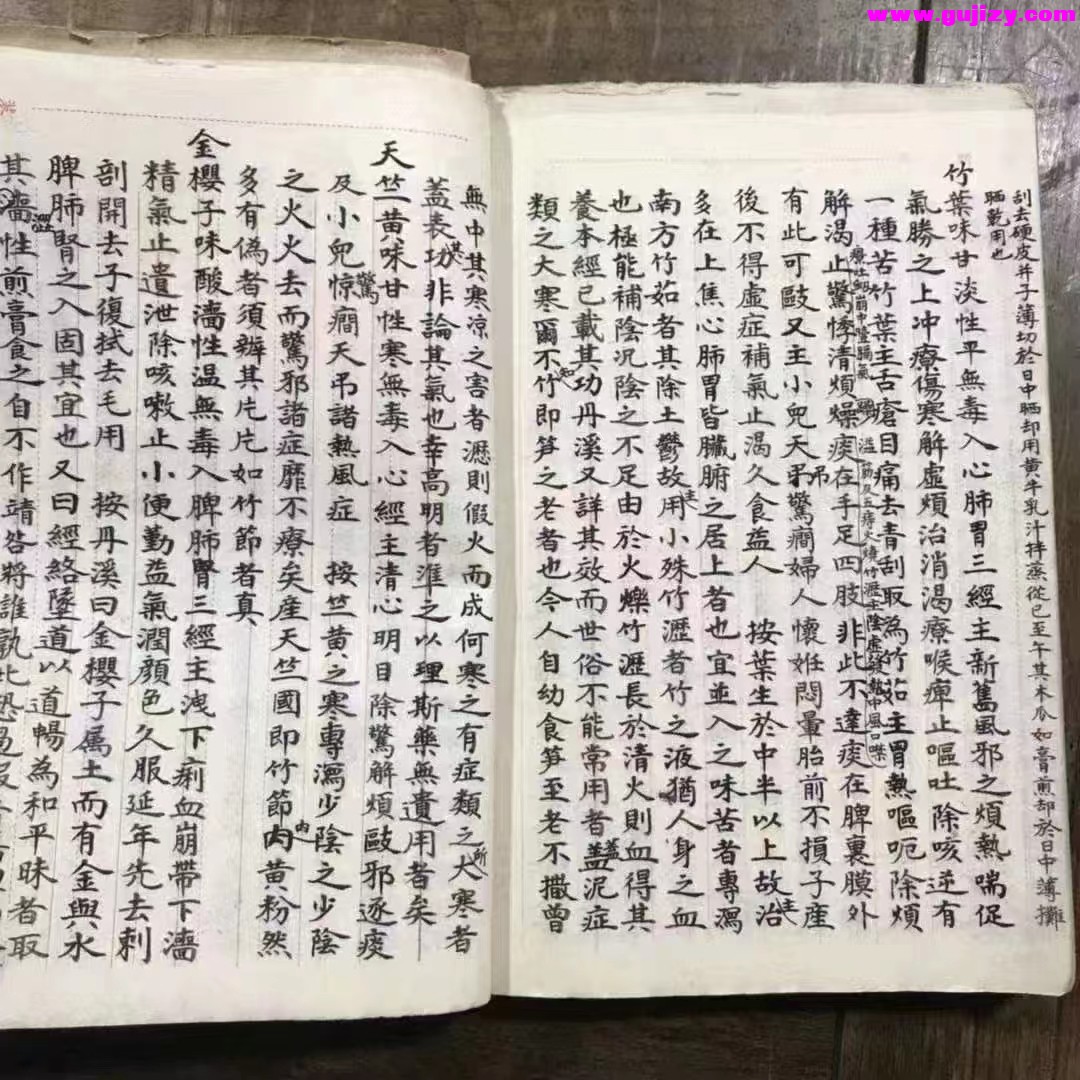 www.gujizy.com
刮去硬皮并子薄切於日中晒却用黄牛乳汁拌蒸從巳至午其木瓜如膏煎却於日中薄攤
晒乾用也
竹葉味甘淡性平無毒入心肺胃三經主新舊風邪之煩熱喘促
氣勝之上冲療傷寒解虛煩治消渴療喉痺止嘔吐除咳逆有
一種苦竹葉主舌瘡目痛去青刮取為竹茹主胃熱嘔呃除煩
解渴止驚悸清煩燥痰在手足四肢非此不達痰在脾裏膜外
有此可敺又主小兒天吊驚癎婦人懷姙悶暈胎前不損子產
後不得虛症補氣止渴久食益人 按葉生於中半以上故治
多在上焦心肺胃皆臟腑之居上者也宜並入之味苦者專瀉
南方竹茹者其除土鬱故用小殊竹瀝者竹之液猶人身之血
也極能補陰况陰之不足由於火爍竹瀝長於清火則血得其
養本經已載其功丹溪又詳其效而世俗不能常用者盖泥症
類之大寒爾不知竹即笋之老者也今人自幼食笋至老不撒曾
無中其寒凉之害者瀝則假火而成何寒之有症類之所大寒者
蓋表其功非論其氣也幸高明者準之以理斯藥無遺用者矣
天竺黄味甘性寒無毒入心經主清心明目除驚解煩敺邪逐痰
及小兒驚癎天吊諸熱風症 按竺黄之寒專瀉少陰之少陰
之火火去而驚邪諸症靡不療矣產天竺國即竹節内黄粉然
多有偽者須辨其片片如竹節者真
金櫻子味酸濇性温無毒入脾肺腎三經主洩下痢血崩帶下濇
精氣止遺泄除咳嗽止小便勤益氣潤顔色久服延年先去刺
剖開去子復拭去毛用 按丹溪曰金櫻子属土而有金與水
脾肺腎之入固其宜也又曰經絡墜道以道暢為和平昧者取
其濇性煎膏食之自不作靖咎將誰執